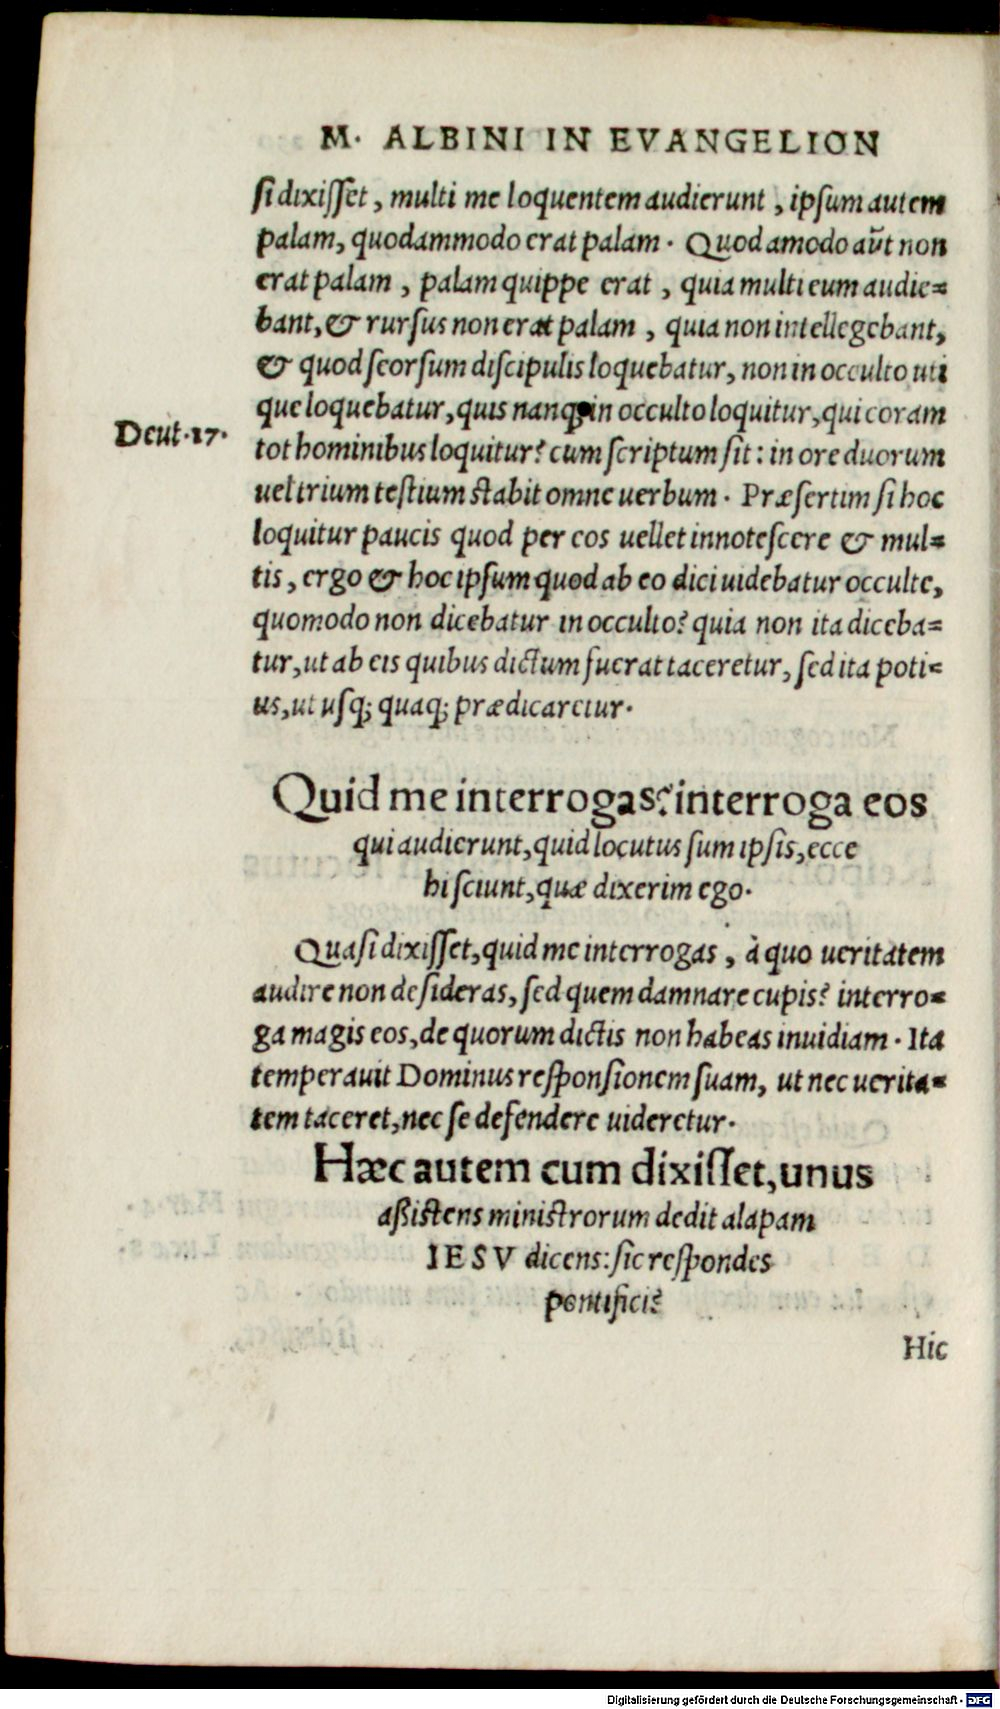 M. ALBINI IN EVANGELION
si dixisset, multi me loquentem audierunt, ipsum autem
palam, quodammodo erat palam. Quodamodo aūt non
erat palam, palam quippe erat, quia multi eum audie=
bant, & rursus non erat palam, quia non intellegebant,
& quod seorsum discipulis loquebatur, non in occulto uti
que loquebatur, quis nanq; in occulto loquitur, qui coram
Deut.17.
tot hominibus loquitur? cum scriptum sit: in ore duorum
uel trium testium stabit omne uerbum. Præsertim si hoc
loquitur paucis quod per eos uellet innotescere & mul=
tis, ergo & hoc ipsum quod ab eo dici uidebatur occulte,
quomodo non dicebatur in occulto? quia non ita diceba=
tur, ut ab eis quibus dictum fuerat taceretur, sed ita poti=
us, ut usq; quaq; prædicaretur.
Quid me interrogas? interroga eos
qui audierunt, quid locutus sum ipsis, ecce
hi sciunt, quæ dixerim ego.
Quasi dixisset, quid me interrogas, à quo ueritatem
audire non desideras, sed quem damnare cupis? interro=
ga magis eos, de quorum dictis non habeas inuidiam. Ita
temperauit Dominus responsionem suam, ut nec uerita=
tem taceret, nec se defendere uideretur.
Hæc autem cum dixisset, unus
aßistens ministrorum dedit alapam
IESV dicens: sic respondes
pontifici?
Hic
Digitalisierung gefördert durch die Deutsche Forschungsgemeinschaft - DFG